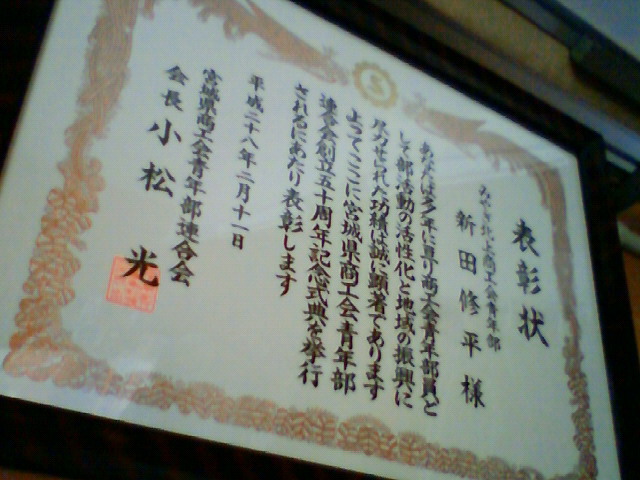 表彰状
みやぎ北上商工会青年部
新田修平様
あなたは多年に亘り商工会青年部員と
して部活動の活性化と地域の振興に
尽力せられた功績は誠に顕著であります
よつてここに宮城県商工会青年部
連合会創立五十周年記念式典を挙行
されるにあたり表彰します
平成二十八年二月十一日
宮城県商工会青年部連合会
会長 小松 光